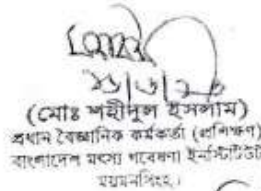 ২১/৬/২০
(মোঃ শহীদুল ইসলাম)
প্রধান বৈজ্ঞানিক কর্মকর্তা (প্রশিক্ষণ)
বাংলাদেশ মৎস্য গবেষণা ইনস্টিটিউট
ময়মনসিংহ।